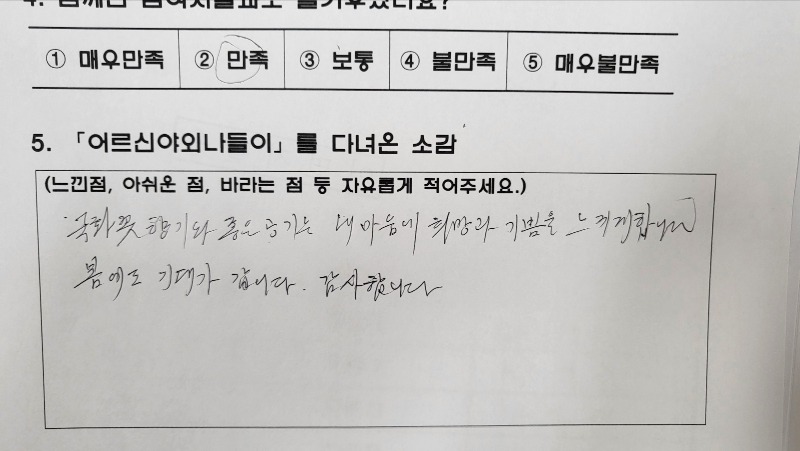 4. 함께한 참여자들과는 즐거우셨나요?
① 매우만족 ② 만족 ③ 보통 ④ 불만족 ⑤ 매우불만족
5. 「어르신야외나들이」를 다녀온 소감
(느낀점, 아쉬운 점, 바라는 점 등 자유롭게 적어주세요.)
국화꽃 향기와 좋은 공기는 내 마음에 희망과 기쁨을 느끼게 합니다
봄에도 기대가 갑니다. 감사합니다